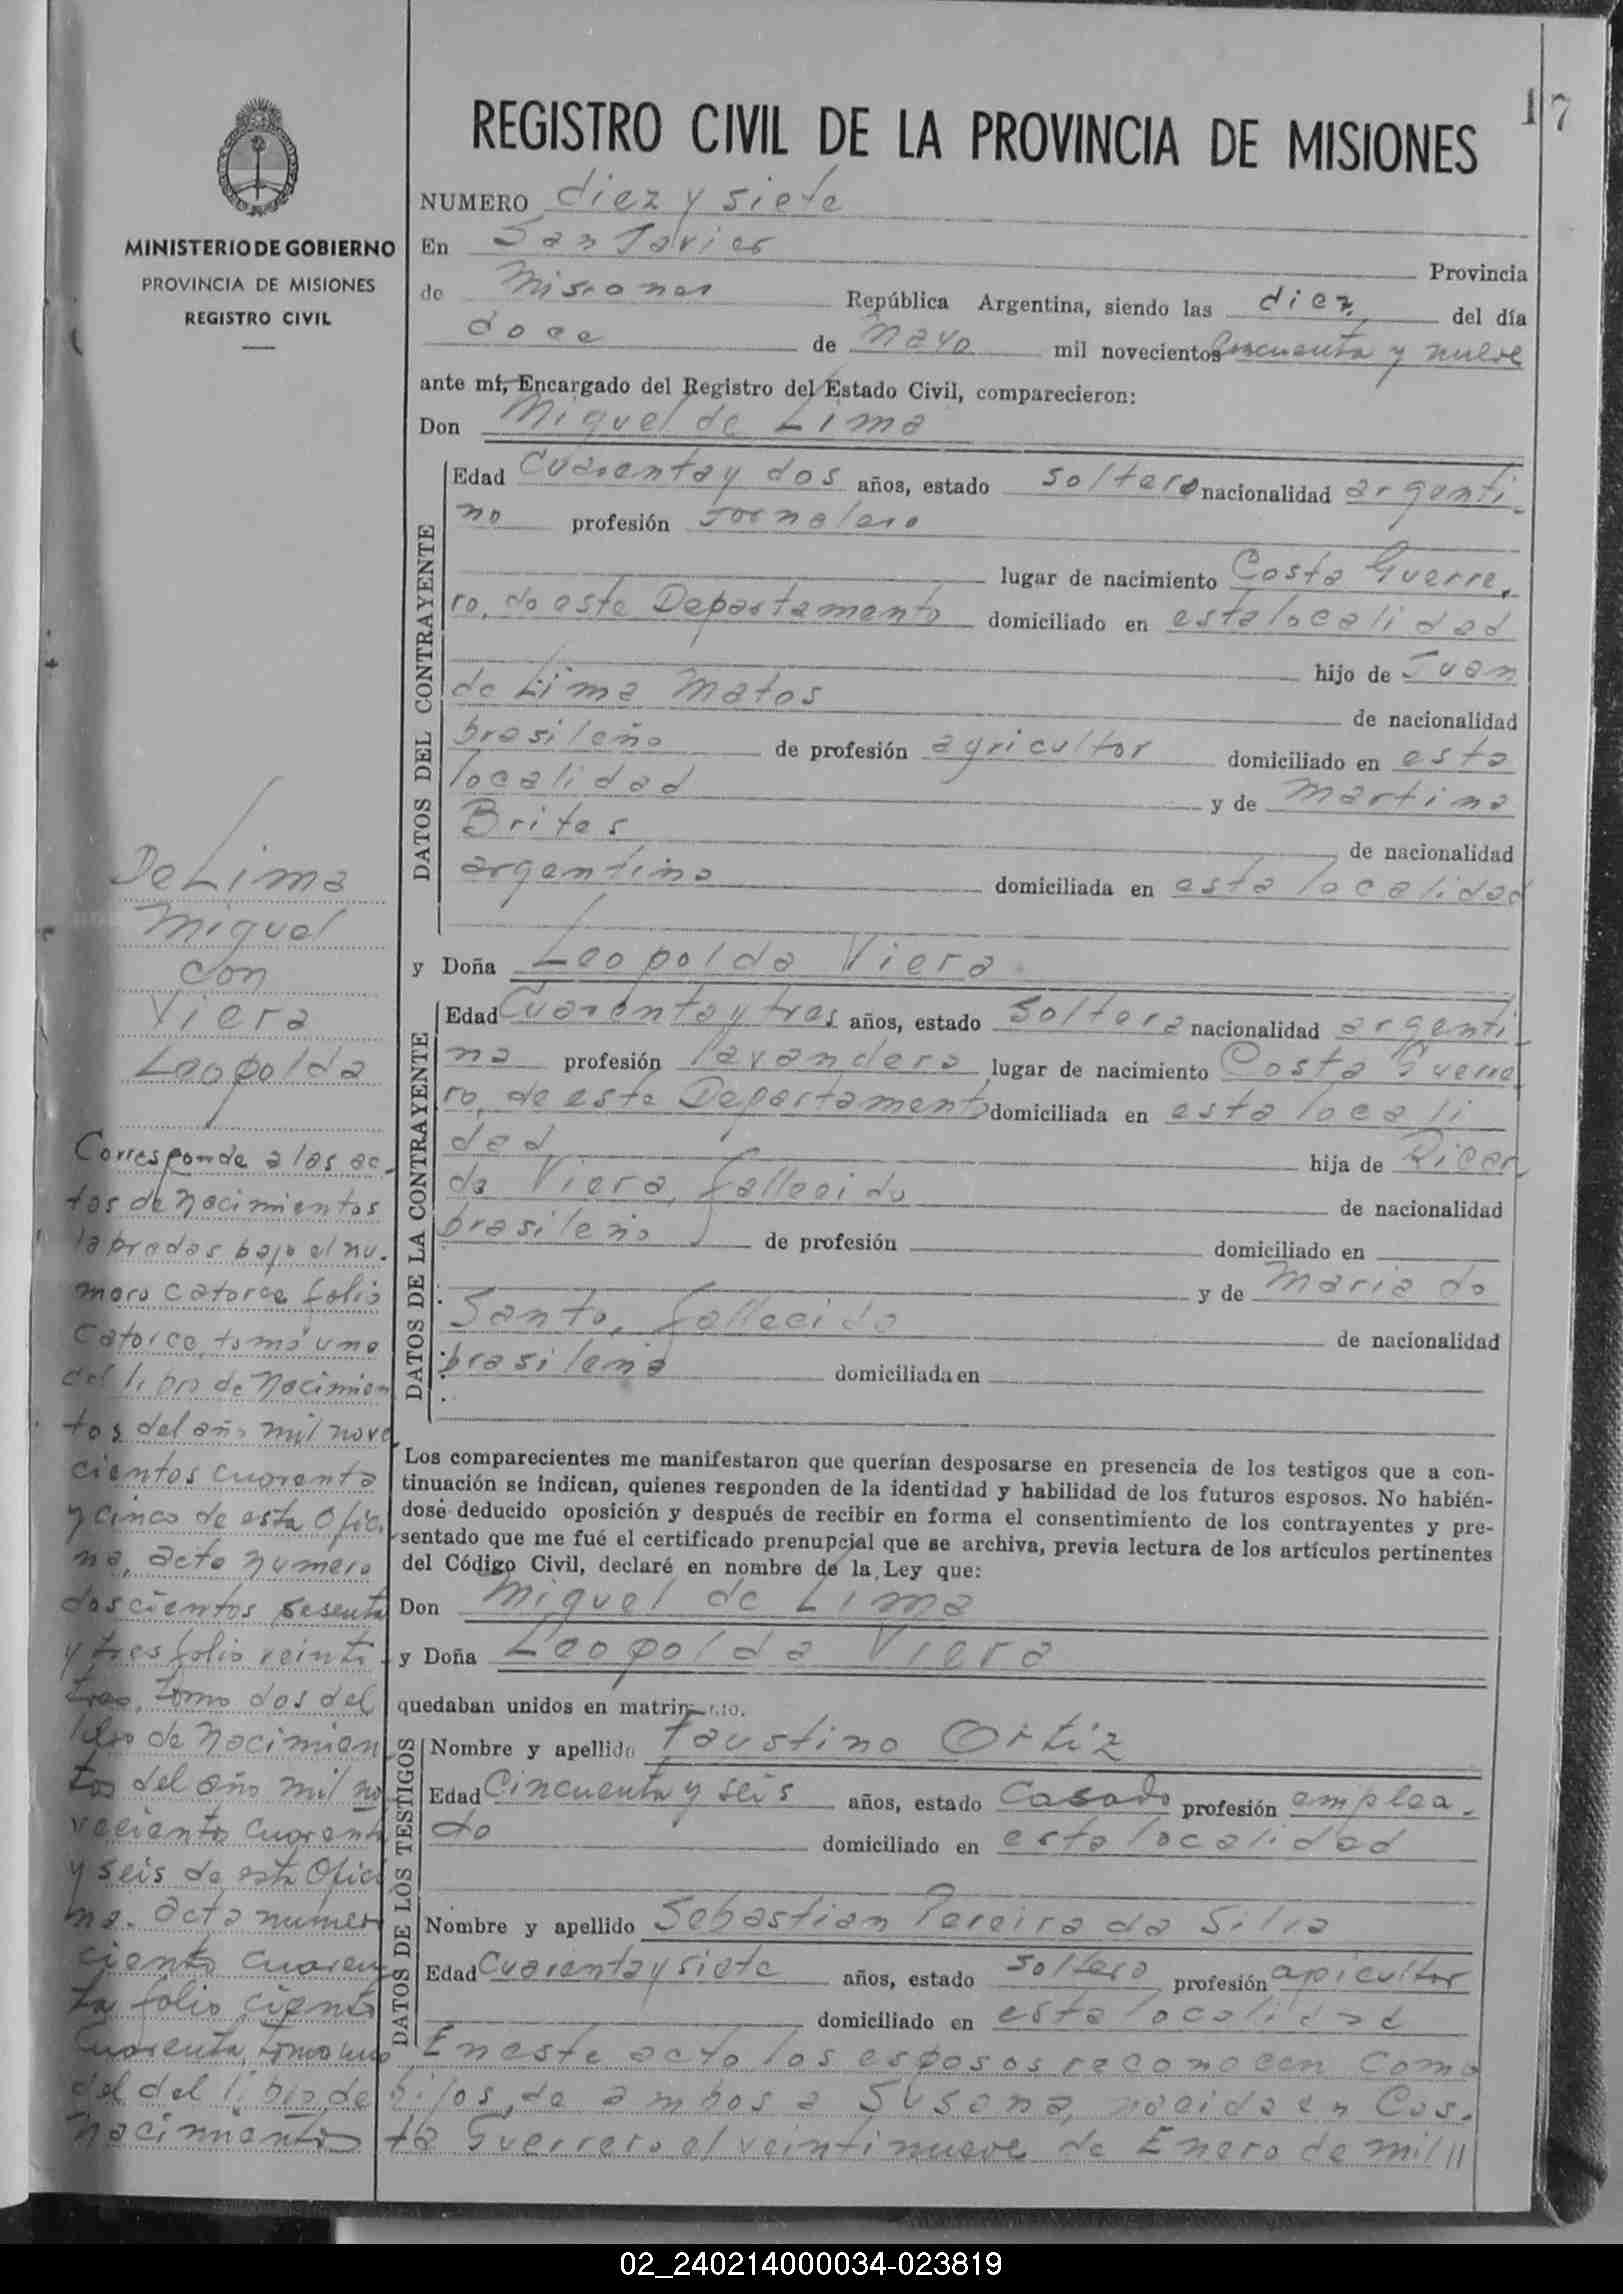 17
REGISTRO CIVIL DE LA PROVINCIA DE MISIONES
MINISTERIO DE GOBIERNO
PROVINCIA DE MISIONES
REGISTRO CIVIL
De Lima
Miguel
con
Viera
Leopolda
Corresponde a las ac-
tas de Nacimientos
labradas bajo el nu-
mero catorce folio
catorce, tomo uno
del libro de Nacimien
tos del año mil nove
cientos cuarenta
y cinco de esta Ofici
na, acta numero
doscientos sesenta
y tres folio veinti
tres, tomo dos del
libro de Nacimien
tos del año mil no
veciento cuarenta
y seis de esta Ofici
na. acta numero
ciento cuaren
ta folio ciento
cuarenta, tomo uno
del del libro de
nacimientos
NUMERO diez y siete
En San Javier Provincia
de Misiones República Argentina, siendo las diez del día
doce de Mayo mil novecientos cincuenta y nueve
ante mí, Encargado del Registro del Estado Civil, comparecieron:
Don Miguel de Lima
DATOS DEL CONTRAYENTE
Edad Cuarenta y dos años, estado soltero nacionalidad argenti-
no profesión Jornalero
lugar de nacimiento Costa Guerre,
ro, de este Departamento domiciliado en esta localidad
hijo de Juan
de Lima Matos de nacionalidad
brasileño de profesión agricultor domiciliado en esta
localidad y de Martina
Brites de nacionalidad
argentina domiciliada en esta localidad
y Doña Leopolda Viera
DATOS DE LA CONTRAYENTE
Edad Cuarenta y tres años, estado Soltera nacionalidad argenti-
na profesión lavandera lugar de nacimiento Costa Guerre
ro, de este Departamento domiciliada en esta locali
dad hija de Ricar,
do Viera, fallecido de nacionalidad
brasileño de profesión domiciliado en
y de Maria do
Santo, fallecida de nacionalidad
brasileña domiciliada en
Los comparecientes me manifestaron que querían desposarse en presencia de los testigos que a con-
tinuación se indican, quienes responden de la identidad y habilidad de los futuros esposos. No habién-
dose deducido oposición y después de recibir en forma el consentimiento de los contrayentes y pre-
sentado que me fué el certificado prenupcial que se archiva, previa lectura de los artículos pertinentes
del Código Civil, declaré en nombre de la Ley que:
Don Miguel de Lima
y Doña Leopolda Viera
quedaban unidos en matrimonio.
DATOS DE LOS TESTIGOS
Nombre y apellido Faustino Ortiz
Edad Cincuenta y seis años, estado Casado profesión emplea-
do domiciliado en esta localidad
Nombre y apellido Sebastian Pereira da Silva
Edad Cuarenta y siete años, estado soltero profesión apicultor
domiciliado en esta localidad
En este acto los esposos reconocen como
hijos de ambos a Susana, nacida en Cos-
ta Guerrero el veintinueve de Enero de mil //
02_240214000034-023819